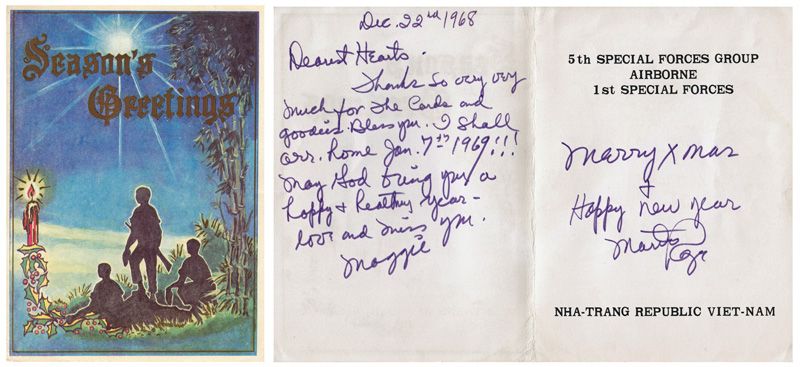 Season's
Greetings
Dec. 22nd 1968
Dearest Hearts -
Thanks so very very
much for the Cards and
goodies. Bless you. I shall
arr. home Jan. 7th 1969!!!
May God bring you a
happy & healthy year -
love and miss you.
Maggie
5th SPECIAL FORCES GROUP
AIRBORNE
1st SPECIAL FORCES
Marry Xmas
&
Happy new year
NHA-TRANG REPUBLIC VIET-NAM